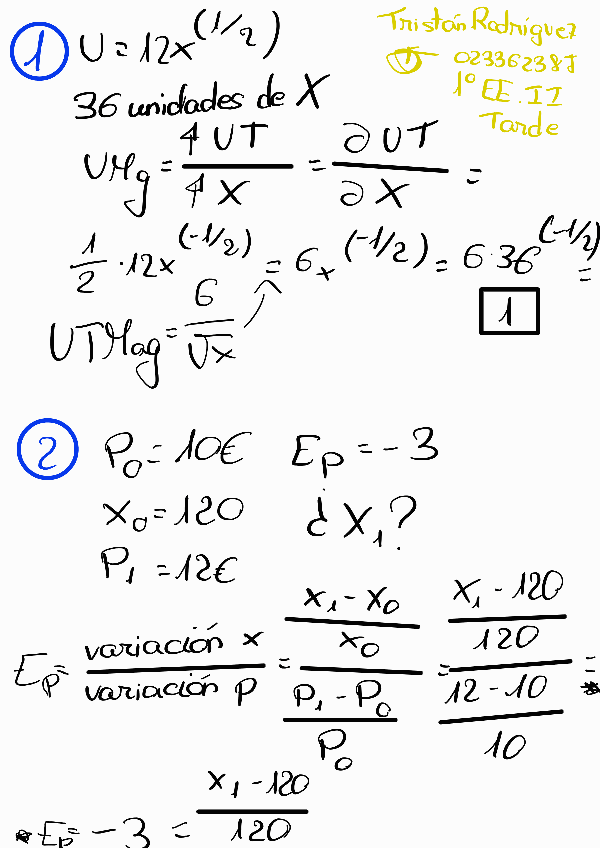 ① U = 12x^(1/2)
Tristán Rodríguez
02336238J
1º EE.II
Tarde
36 unidades de X
UMg = ΔUT/ΔX = ∂UT/∂X =
1/2 · 12x^(-1/2) = 6x^(-1/2) = 6·36^(-1/2) =
1
UTMag = 6/√x
② P₀ = 10€ Ep = -3
x₀ = 120 ¿X₁?
P₁ = 12€
Ep = variación x / variación p = ((x₁ - x₀)/x₀) / ((P₁ - P₀)/P₀) = ((x₁ - 120)/120) / ((12 - 10)/10) = *
* Ep = -3 = (x₁ - 120)/120